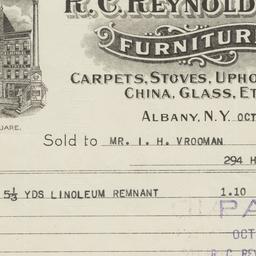 R. C. REYNOLD
FURNITURE
CARPETS, STOVES, UPHO
CHINA, GLASS, ET
ALBANY, N.Y. OCT
UARE.
Sold to MR. I. H. VROOMAN
294 H
5⅓ YDS LINOLEUM REMNANT 1.10
PA
OCT
R. C. REY